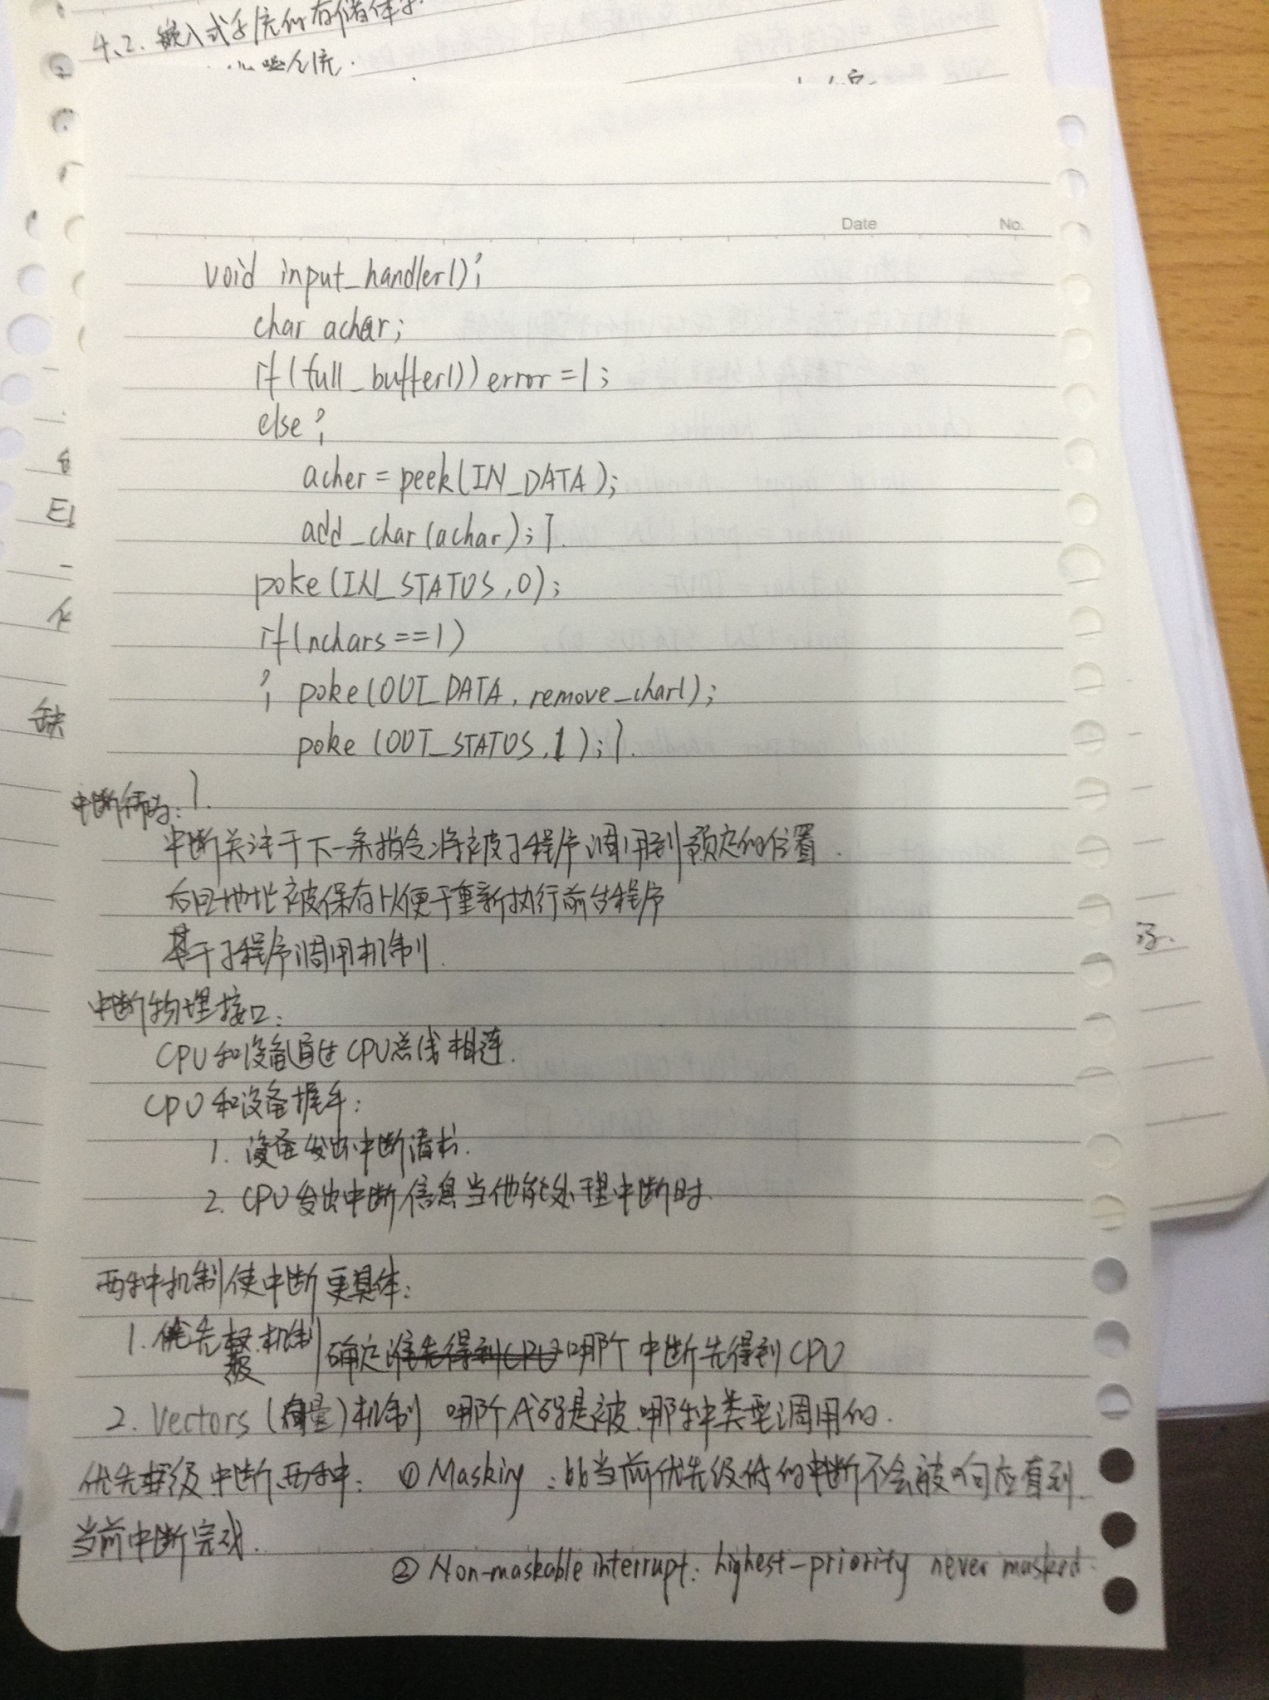 4.2. 嵌入式系统的存储体系
Date No.
void input_handler();
char achar;
if (full_buffer()) error = 1;
else {
acher = peek(IN_DATA);
add_char(achar); }.
poke(IN_STATUS, 0);
if(nchars == 1)
{ poke(OUT_DATA, remove_char();
poke (OUT_STATUS, 1); }.
}.
中断行为:
中断关注于下一条指令将被子程序调用到预定的位置.
返回地址被保存以便于重新执行前台程序
基于子程序调用机制.
中断物理接口:
CPU和设备通过CPU总线相连.
CPU和设备握手:
1. 设备发出中断请求.
2. CPU发出中断信息当他能处理中断时.
两种机制使中断更具体:
1. 优先级机制 确定哪个中断先得到CPU
2. Vectors (向量)机制 哪个代码是被哪种类型调用的.
优先级中断两种: ① Masking : bb当前优先级低的中断不会被响应直到
当前中断完成.
② Non-maskable interrupt: highest-priority never masked.
缺